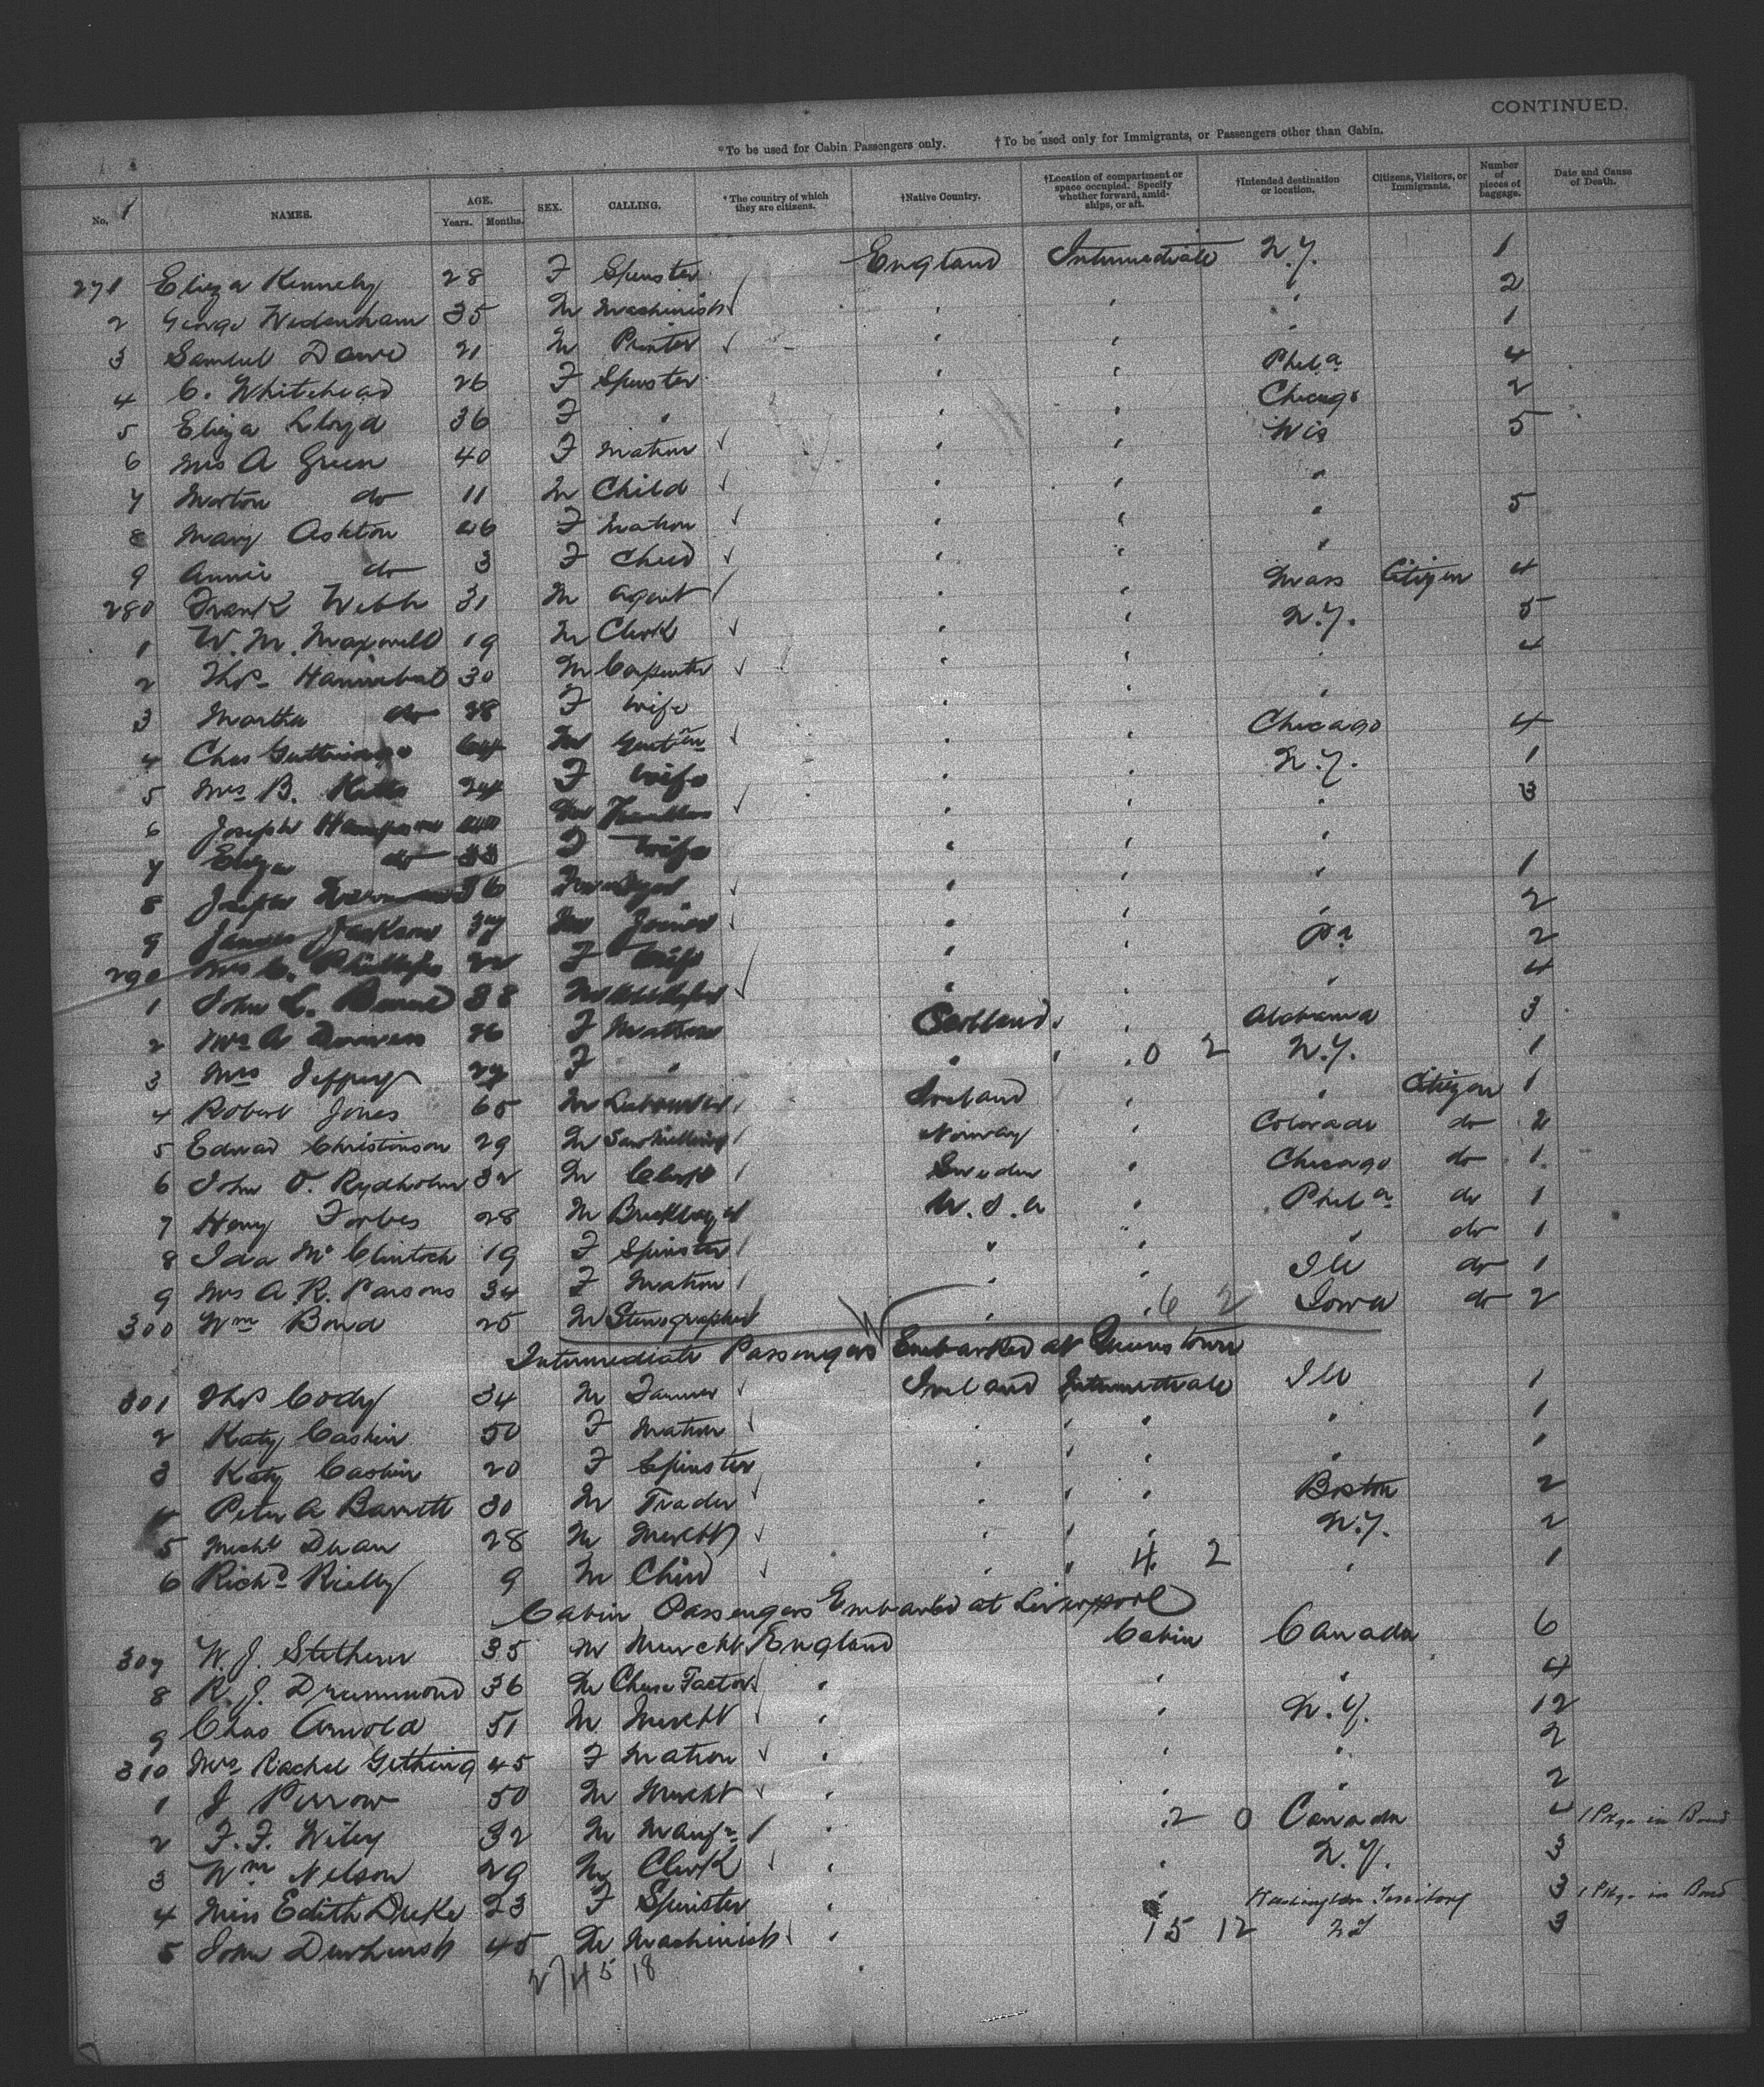 CONTINUED.
*To be used for Cabin Passengers only. †To be used only for Immigrants, or Passengers other than Cabin.
No. NAMES. AGE. Years. Months. SEX. CALLING. *The country of which they are citizens. †Native Country. †Location of compartment or space occupied. Specify whether forward, amidships, or aft. †Intended destination or location. Citizens, Visitors, or Immigrants. Number of pieces of baggage. Date and Cause of Death.
271 Eliza Kennely 28 F Spinster England Intermediate N.Y. 1
2 George Wedenham 35 M Machinist " " " 2
3 Samuel Dawe 21 M Printer " " " 1
4 C. Whitehead 26 F Spinster " " Phila 4
5 Eliza Lloyd 36 F " " " Chicago 2
6 Mrs A Green 40 F Matron " " Wis 5
7 Morton do 11 M Child " " "
8 Mary Ashton 26 F Matron " " " 5
9 Annie do 3 F Child " " "
280 Frank Webb 31 M Agent " " Mass Citizen 4
1 W. M. Maxwell 19 M Clerk " " N.Y. 5
2 Thos Hannibal 30 M Carpenter " " " 4
3 Martha do 28 F Wife " " "
4 Chas 64 M Gentln " " Chicago 4
5 Mrs B. 24 F Wife " " N.Y. 1
6 Joseph M " " " 3
7 Eliza do 33 F Wife " " "
8 Joseph 36 " " " 1
9 James Jackson M Joiner " " " 2
290 Mrs C. Phillips 22 F Wife " " Pa 2
1 John C. 38 M " " " 4
2 Mrs A 26 F Matron Scotland " Alabama 3
3 Mrs Jeffery 27 F " " " 0 2 N.Y. 1
4 Robert Jones 65 M Labourer Ireland " " Citizen 1
5 Edward Christinson 29 M Norway " Colorado do 2
6 John O. Rydholm 32 M Clerk Sweden " Chicago do 1
7 Harry Forbes 28 M Bricklayer U.S.A " Phila do 1
8 Ida McClintock 19 F Spinster " " " do 1
9 Mrs A. R. Parsons 34 F Matron " " Ill do 1
300 Wm Bond 25 M Stenographer " " 6 2 Iowa do 2
Intermediate Passengers Embarked at Queenstown
301 Thos Cody 34 M Farmer Ireland Intermediate Ill 1
2 Katy Cashin 50 F Matron " " " 1
3 Katy Cashin 20 F Spinster " " " 1
4 Peter A Barrett 30 M Trader " " Boston 2
5 Michl Duan 28 M Mercht " " N.Y. 2
6 Richd Rielly 9 M Child " " 4 2 " 1
Cabin Passengers Embarked at Liverpool
307 W. J. Stethem 35 M Mercht England Cabin Canada 6
8 R. J. Drummond 36 M Cheese Factor " " " 4
9 Chas Arnold 51 M Mercht " " N.Y. 12
310 Mrs Rachel Gething 45 F Matron " " " 2
1 J Perrow 50 M Mercht " " " 2
2 F. F. Wiley 32 M Manufr " 2 0 Canada 4 1 Pkge in Bond
3 Wm Nelson 29 M Clerk " " N.Y. 3
4 Miss Edith Duke 23 F Spinster " Washington Territory 3 1 Pkge in Bond
5 John Dewhurst 45 M Machinist " 15 12 NY 3
27 45 18